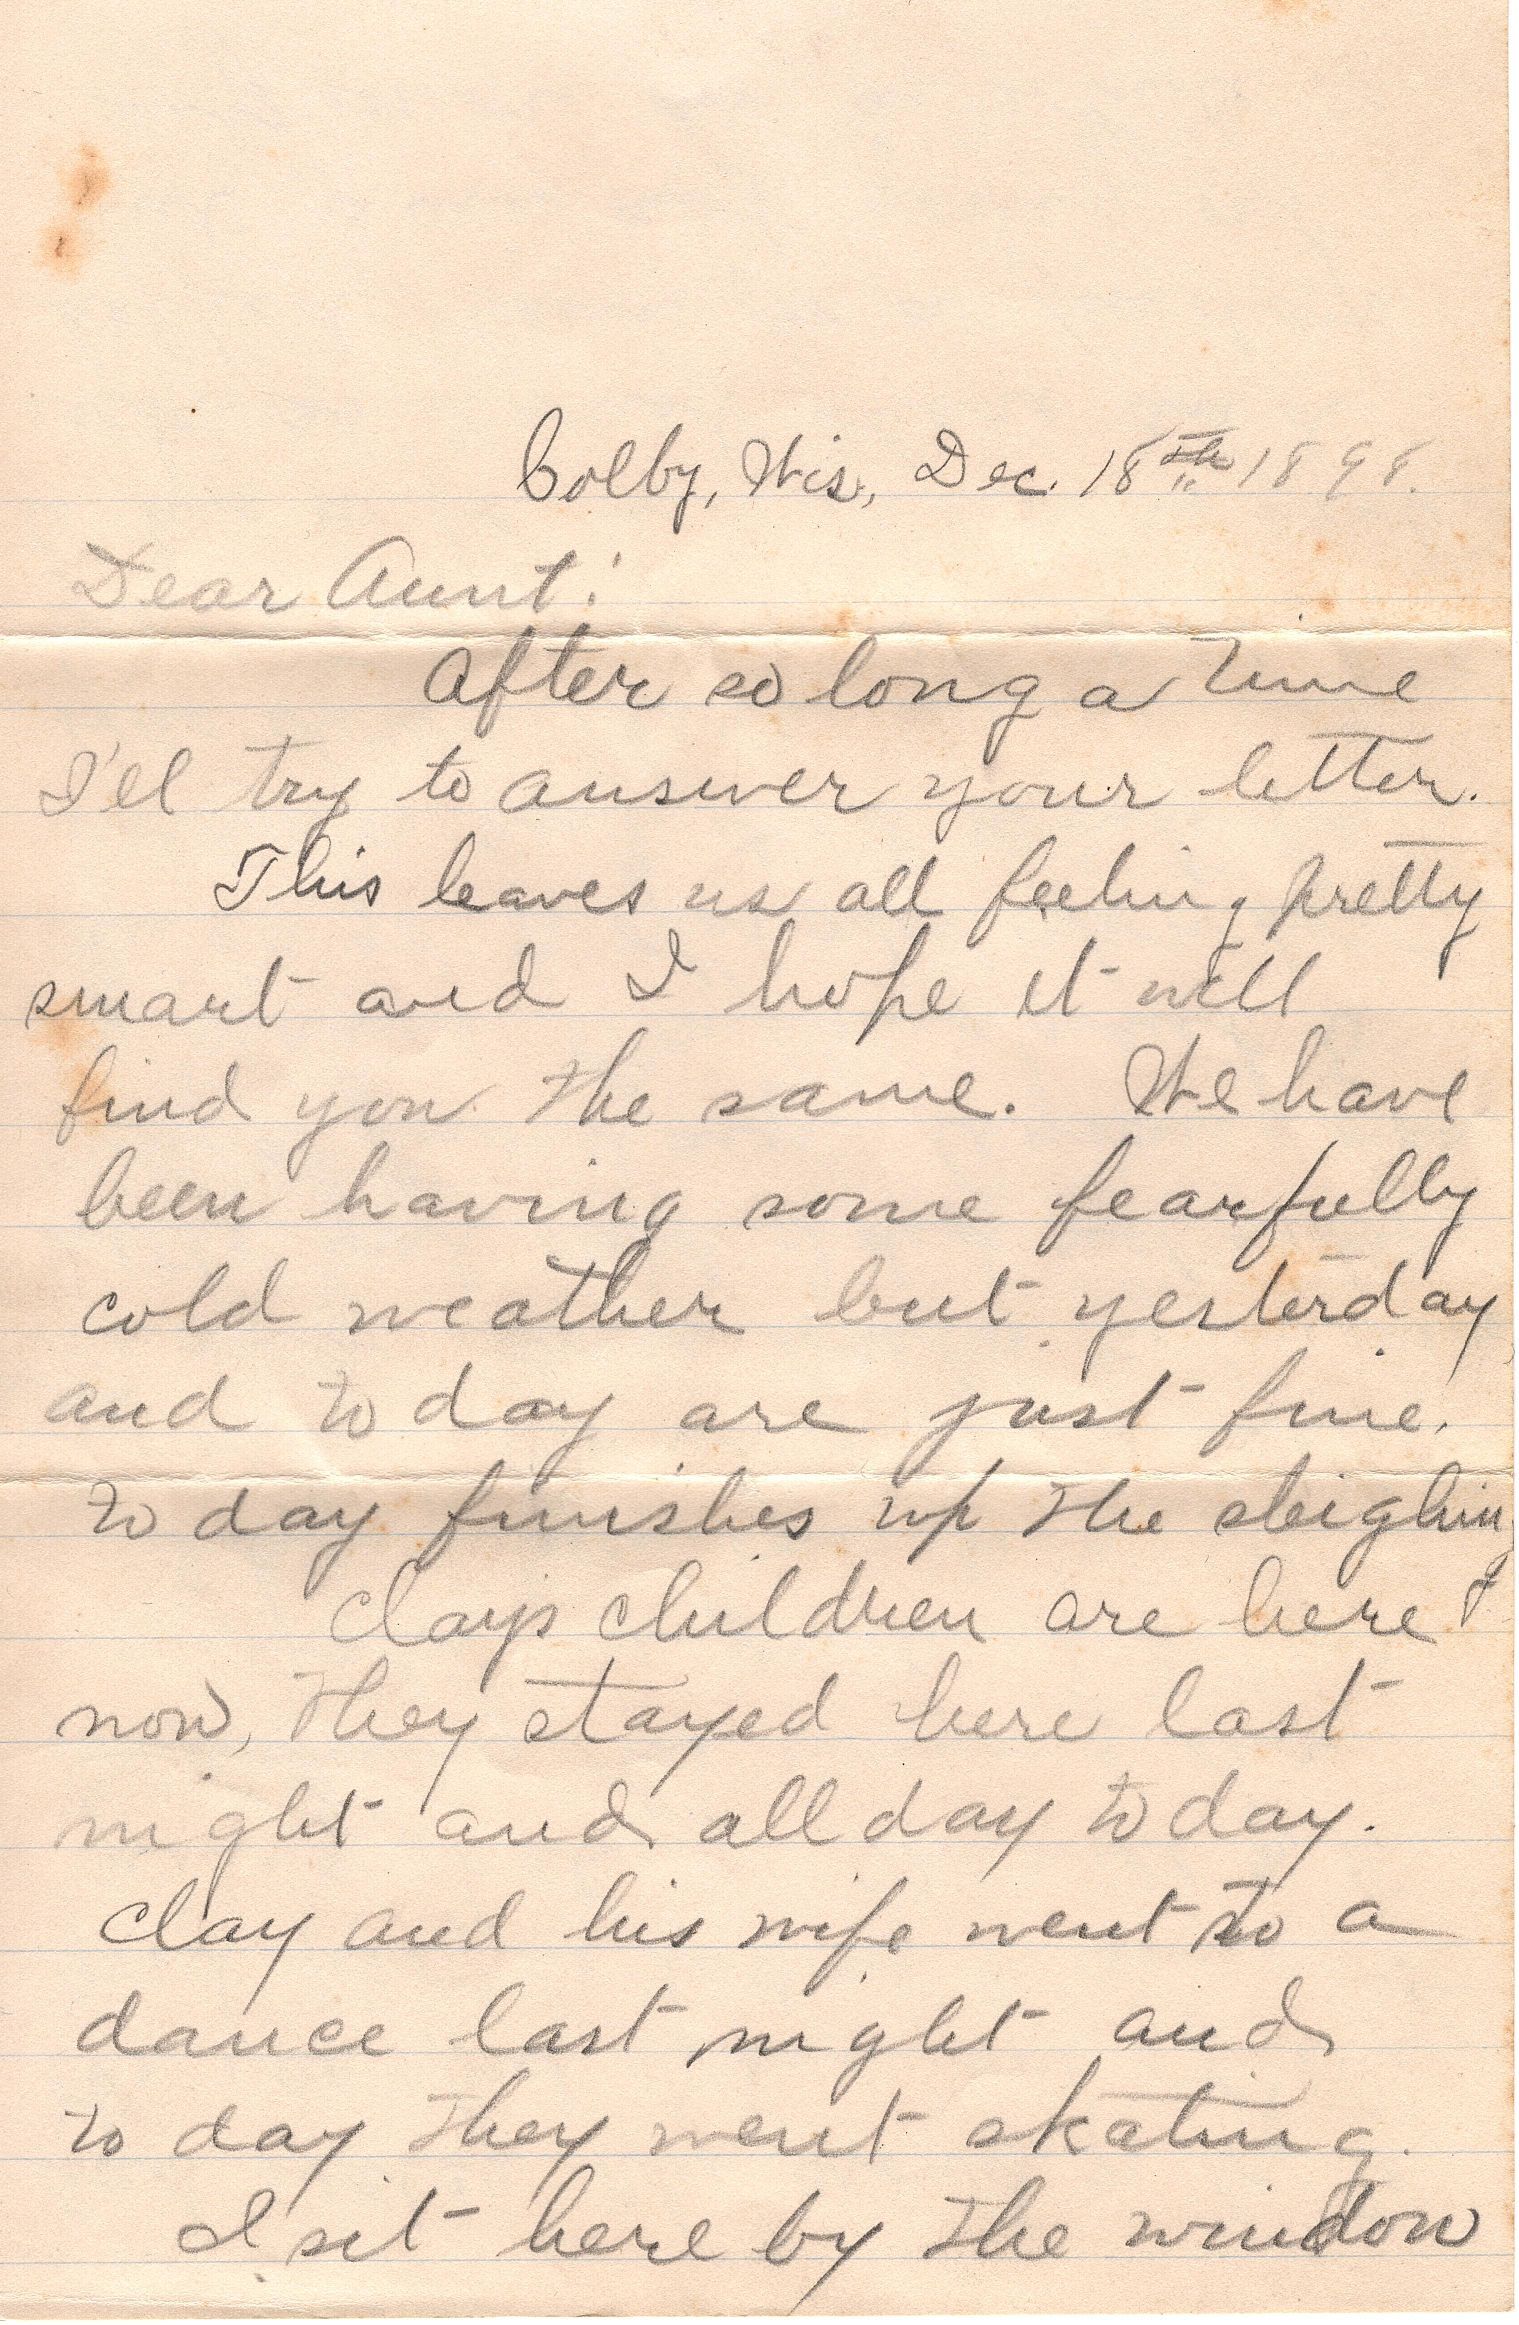 Colby, Wis., Dec. 18th 1898.
Dear Aunt:
After so long a time
I'll try to answer your letter.
This leaves us all feeling pretty
smart and I hope it will
find you the same. We have
been having some fearfully
cold weather but yesterday
and to day are just fine.
to day finishes up the sleighing
Clay's children are here
now, they stayed here last
night and all day to day.
Clay and his wife went to a
dance last night and
to day they went skating.
I sit here by the window